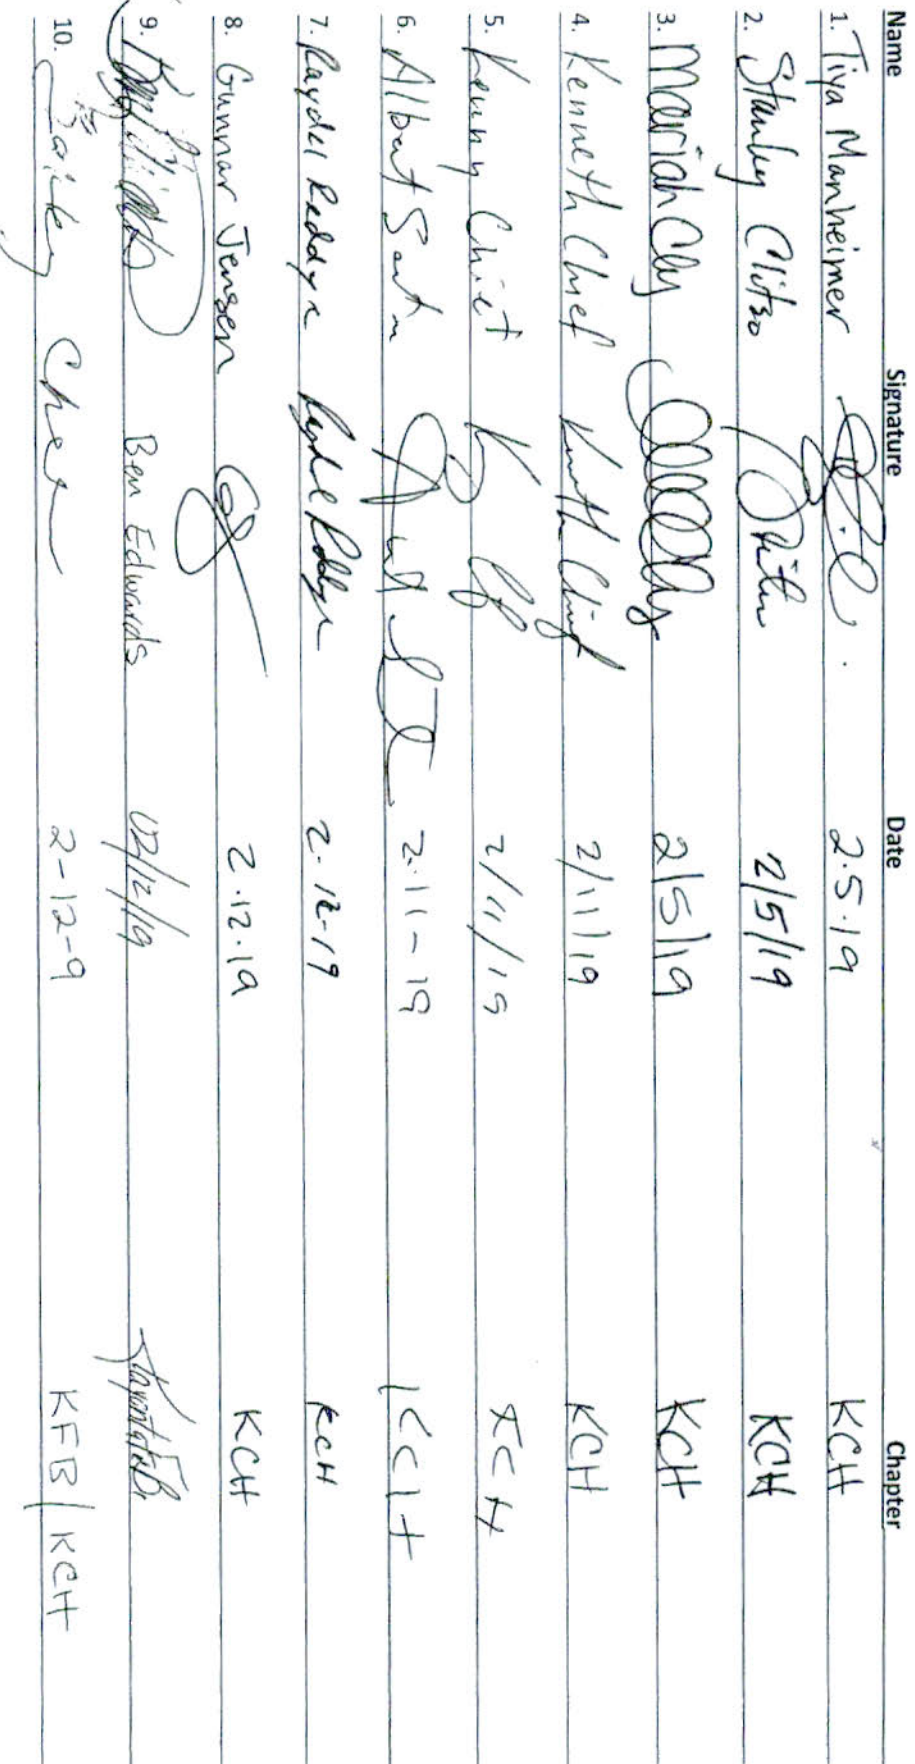 Name Signature Date Chapter
1. Tiya Manheimer 2.5.19 KCH
2. Stanley Clitso 2/5/19 KCH
3. Mariah Cly 2/5/19 KCH
4. Kenneth Chief Kenneth Chief 2/11/19 KCH
5. Kenny Chief 2/11/19 KCH
6. Albert 2.11-19 KCH
7. 2.12-19 KCH
8. Gunnar Jensen GJ 2.12.19 KCH
9. Ben Edwards 02/12/19
10. 2-12-9 KFB/KCH